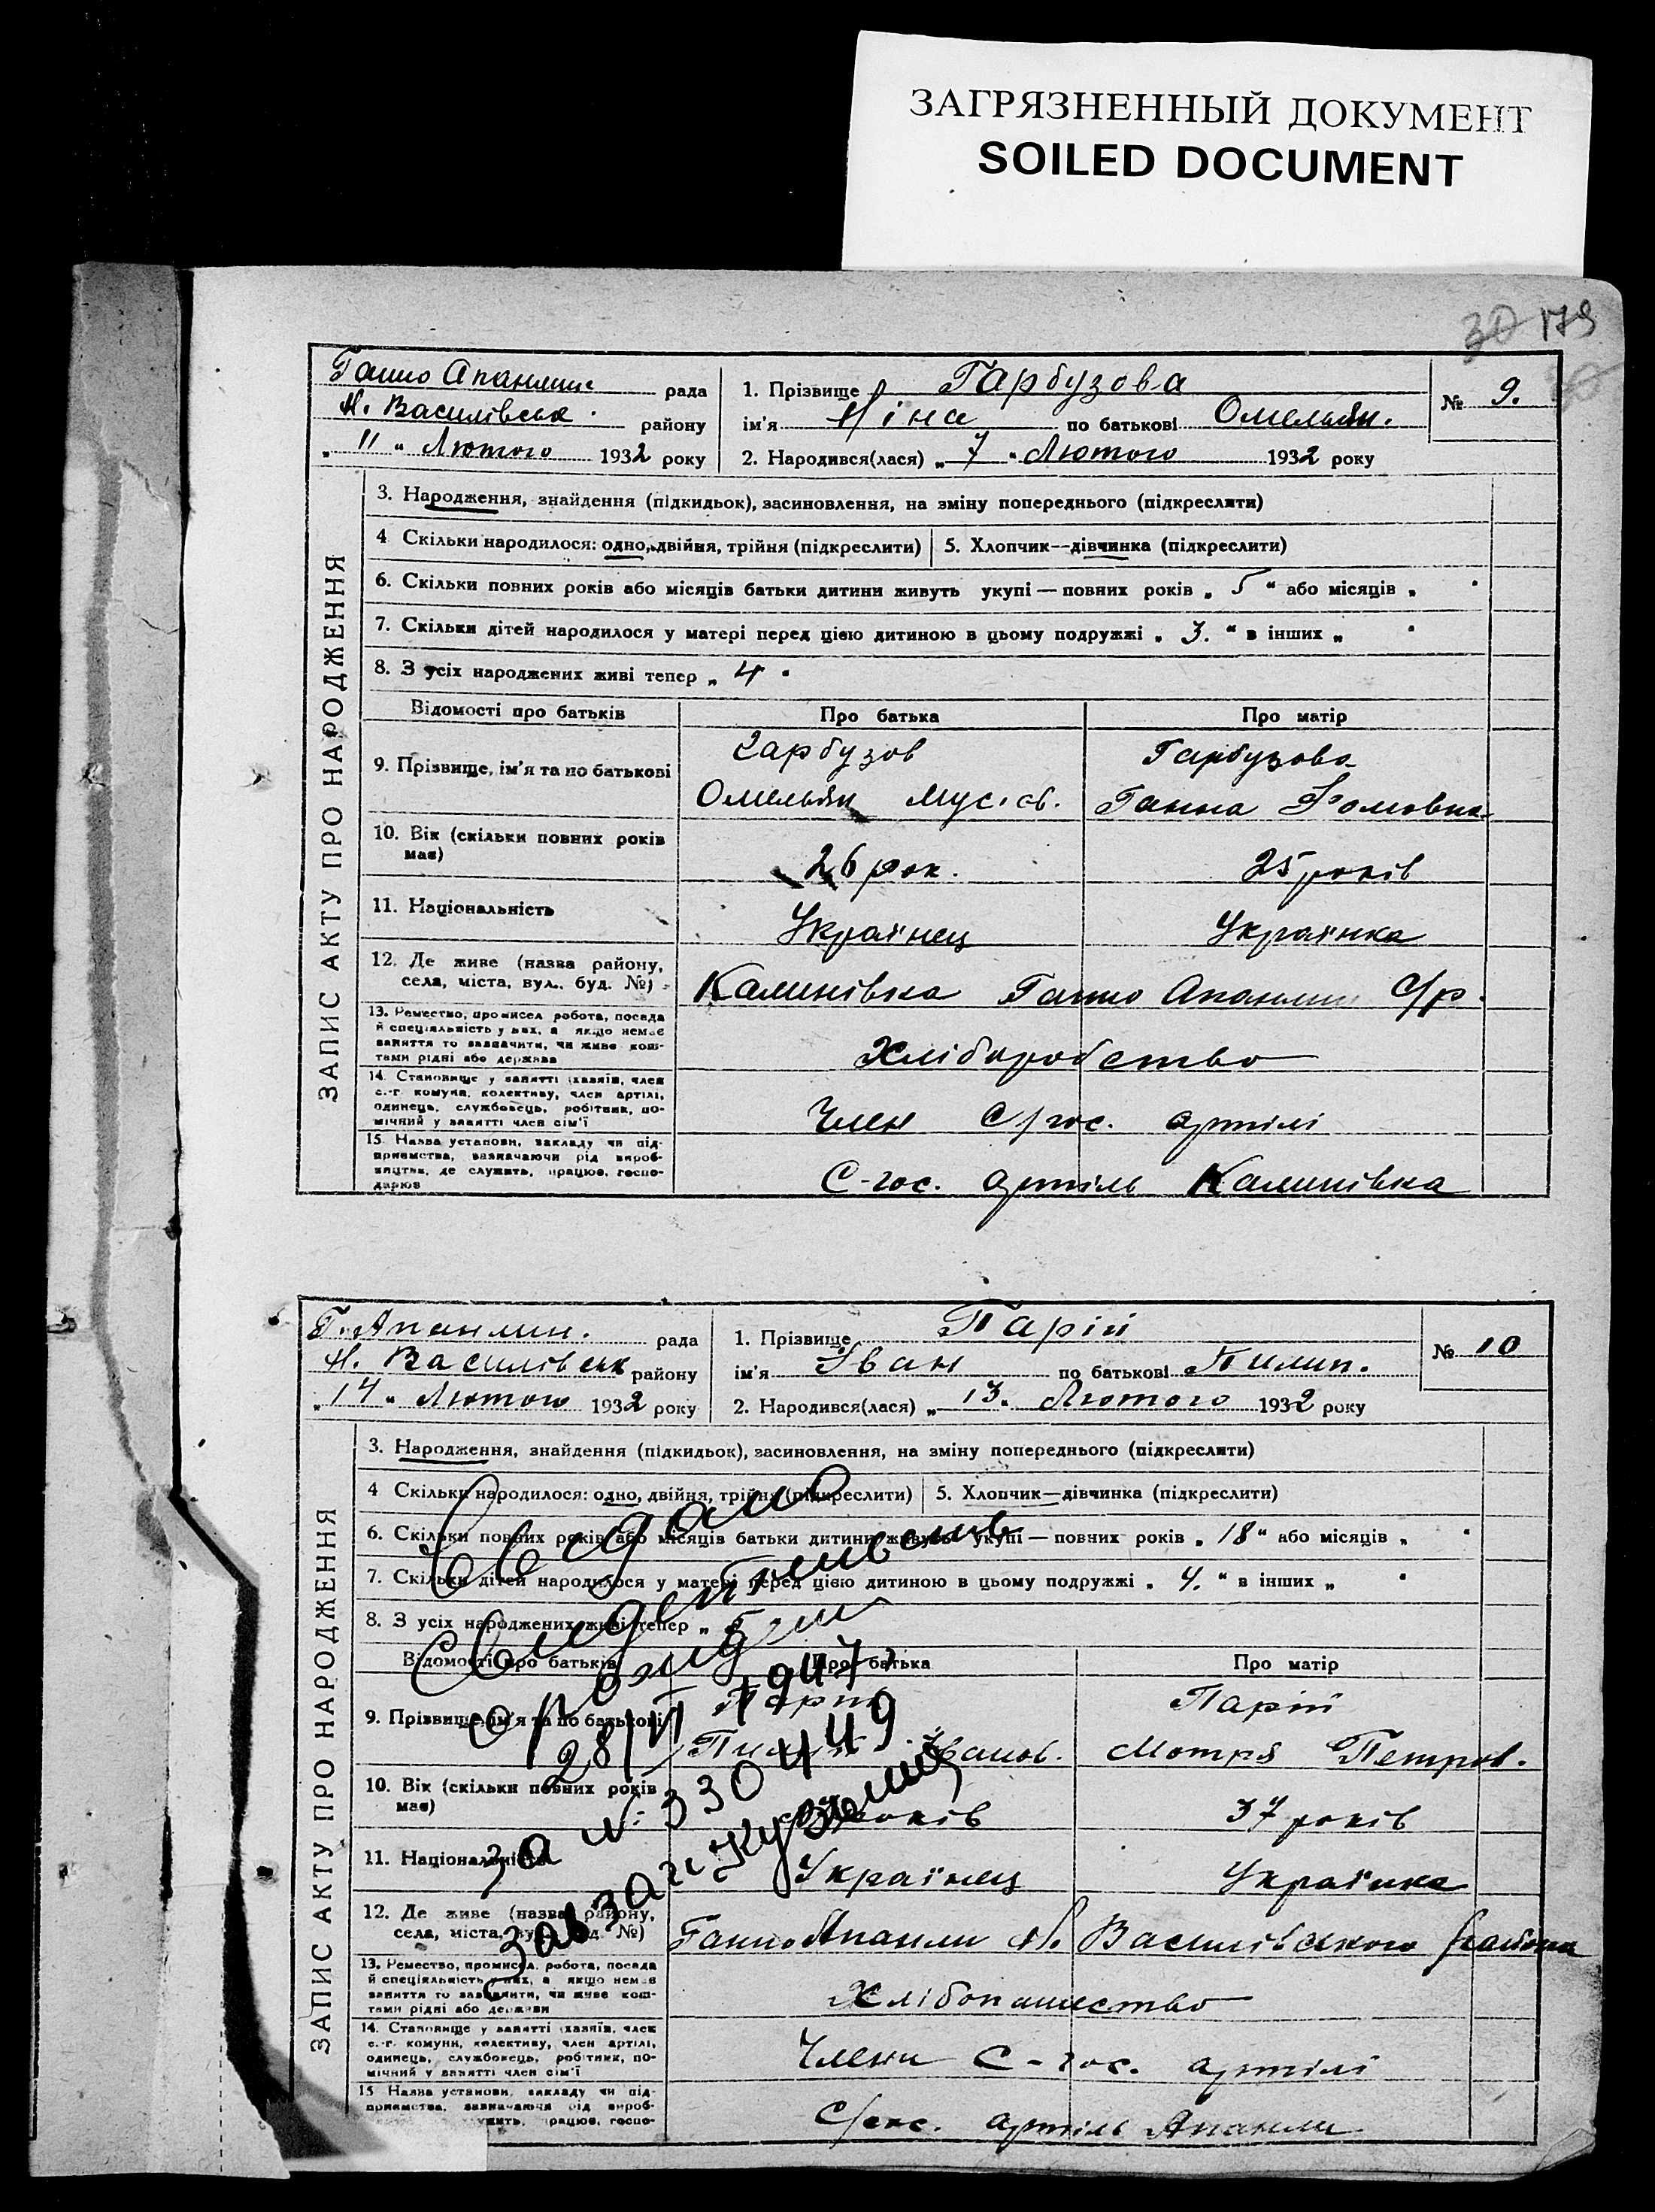 ЗАГРЯЗНЕННЫЙ ДОКУМЕНТ
SOILED DOCUMENT
30 179
рада
Н. Василівськ. району
„ 11 " Лютого 1932 року
1. Прізвище Гарбузова
ім'я Ніна по батькові Омельян.
2. Народився(лася) „ 7 " Лютого 1932 року
№ 9.
ЗАПИС АКТУ ПРО НАРОДЖЕННЯ
3. Народження, знайдення (підкидьок), засиновлення, на зміну попереднього (підкреслити)
4 Скільки народилося: одно, двійня, трійня (підкреслити) 5. Хлопчик—дівчинка (підкреслити)
6. Скільки повних років або місяців батьки дитини живуть укупі — повних років „ 5 " або місяців „ "
7. Скільки дітей народилося у матері перед цією дитиною в цьому подружжі „ 3. " в інших „ "
8. З усіх народжених живі тепер „ 4 "
Відомості про батьків Про батька Про матір
9. Прізвище, ім'я та по батькові
Гарбузов
Омельян Мус. ов.
Гарбузова
Ганна Фомовна
10. Вік (скільки повних років має)
26 рок. 25 років
11. Національність
Українец Українка
12. Де живе (назва району,
села, міста, вул., буд. №)
Калинівка Ганно С/р.
13. Ремество, промисел робота, посада
й спеціяльність у них, а якщо немає
заняття то зазначити, чи живе кош-
тами рідні або держава
Хліборобство
14. Становище у занятті (хазяїн, член
с.-г. комуни, колективу, член артілі,
одинець, службовець, робітник, по-
мічний у занятті член сім'ї
Член С/гос. артілі
15. Назва установи, закладу чи під-
приємства, зазначаючи рід вироб-
ництва, де служить, працює, госпо-
дарює
С-гос. артіль Калинівка
рада
Н. Василівськ району
„ 14 " Лютого 1932 року
1. Прізвище Парій
ім'я Іван по батькові Пилип.
2. Народився(лася) „ 13. Лютого 1932 року
№ 10
ЗАПИС АКТУ ПРО НАРОДЖЕННЯ
3. Народження, знайдення (підкидьок), засиновлення, на зміну попереднього (підкреслити)
4 Скільки народилося: одно, двійня, трійня (підкреслити) 5. Хлопчик—дівчинка (підкреслити)
6. Скільки повних років або місяців батьки дитини живуть укупі — повних років „ 18 " або місяців „ "
7. Скільки дітей народилося у матері перед цією дитиною в цьому подружжі „ 4. " в інших „ "
8. З усіх народжених живі тепер „ 5
Відомості про батьків Про батька Про матір
9. Прізвище, ім'я та по батькові
Парій
Пилип Іванов.
Парій
Мотря Петров.
10. Вік (скільки повних років має)
років 37 років
11. Національність
Українец Українка
12. Де живе (назва району,
села, міста, вул., буд. №)
Н. Василівського району
13. Ремество, промисел робота, посада
й спеціяльність у них, а якщо немає
заняття то зазначити, чи живе кош-
тами рідні або держави
Хлібопашество
14. Становище у занятті (хазяїн, член
с.-г. комуни, колективу, член артілі,
одинець, службовець, робітник, по-
мічний у занятті член сім'ї
Члени С-гос. артілі
15 Назва установи, закладу чи під-
приємства, зазначаючи рід вироб-
служить, працює, госпо-
артіль
28/VI 1947
за №: 330449
Завзагс